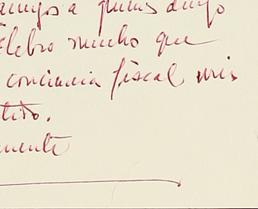 amigos a quienes dirijo
elebro mucho que
conciencia fiscal mis
tido.
mente